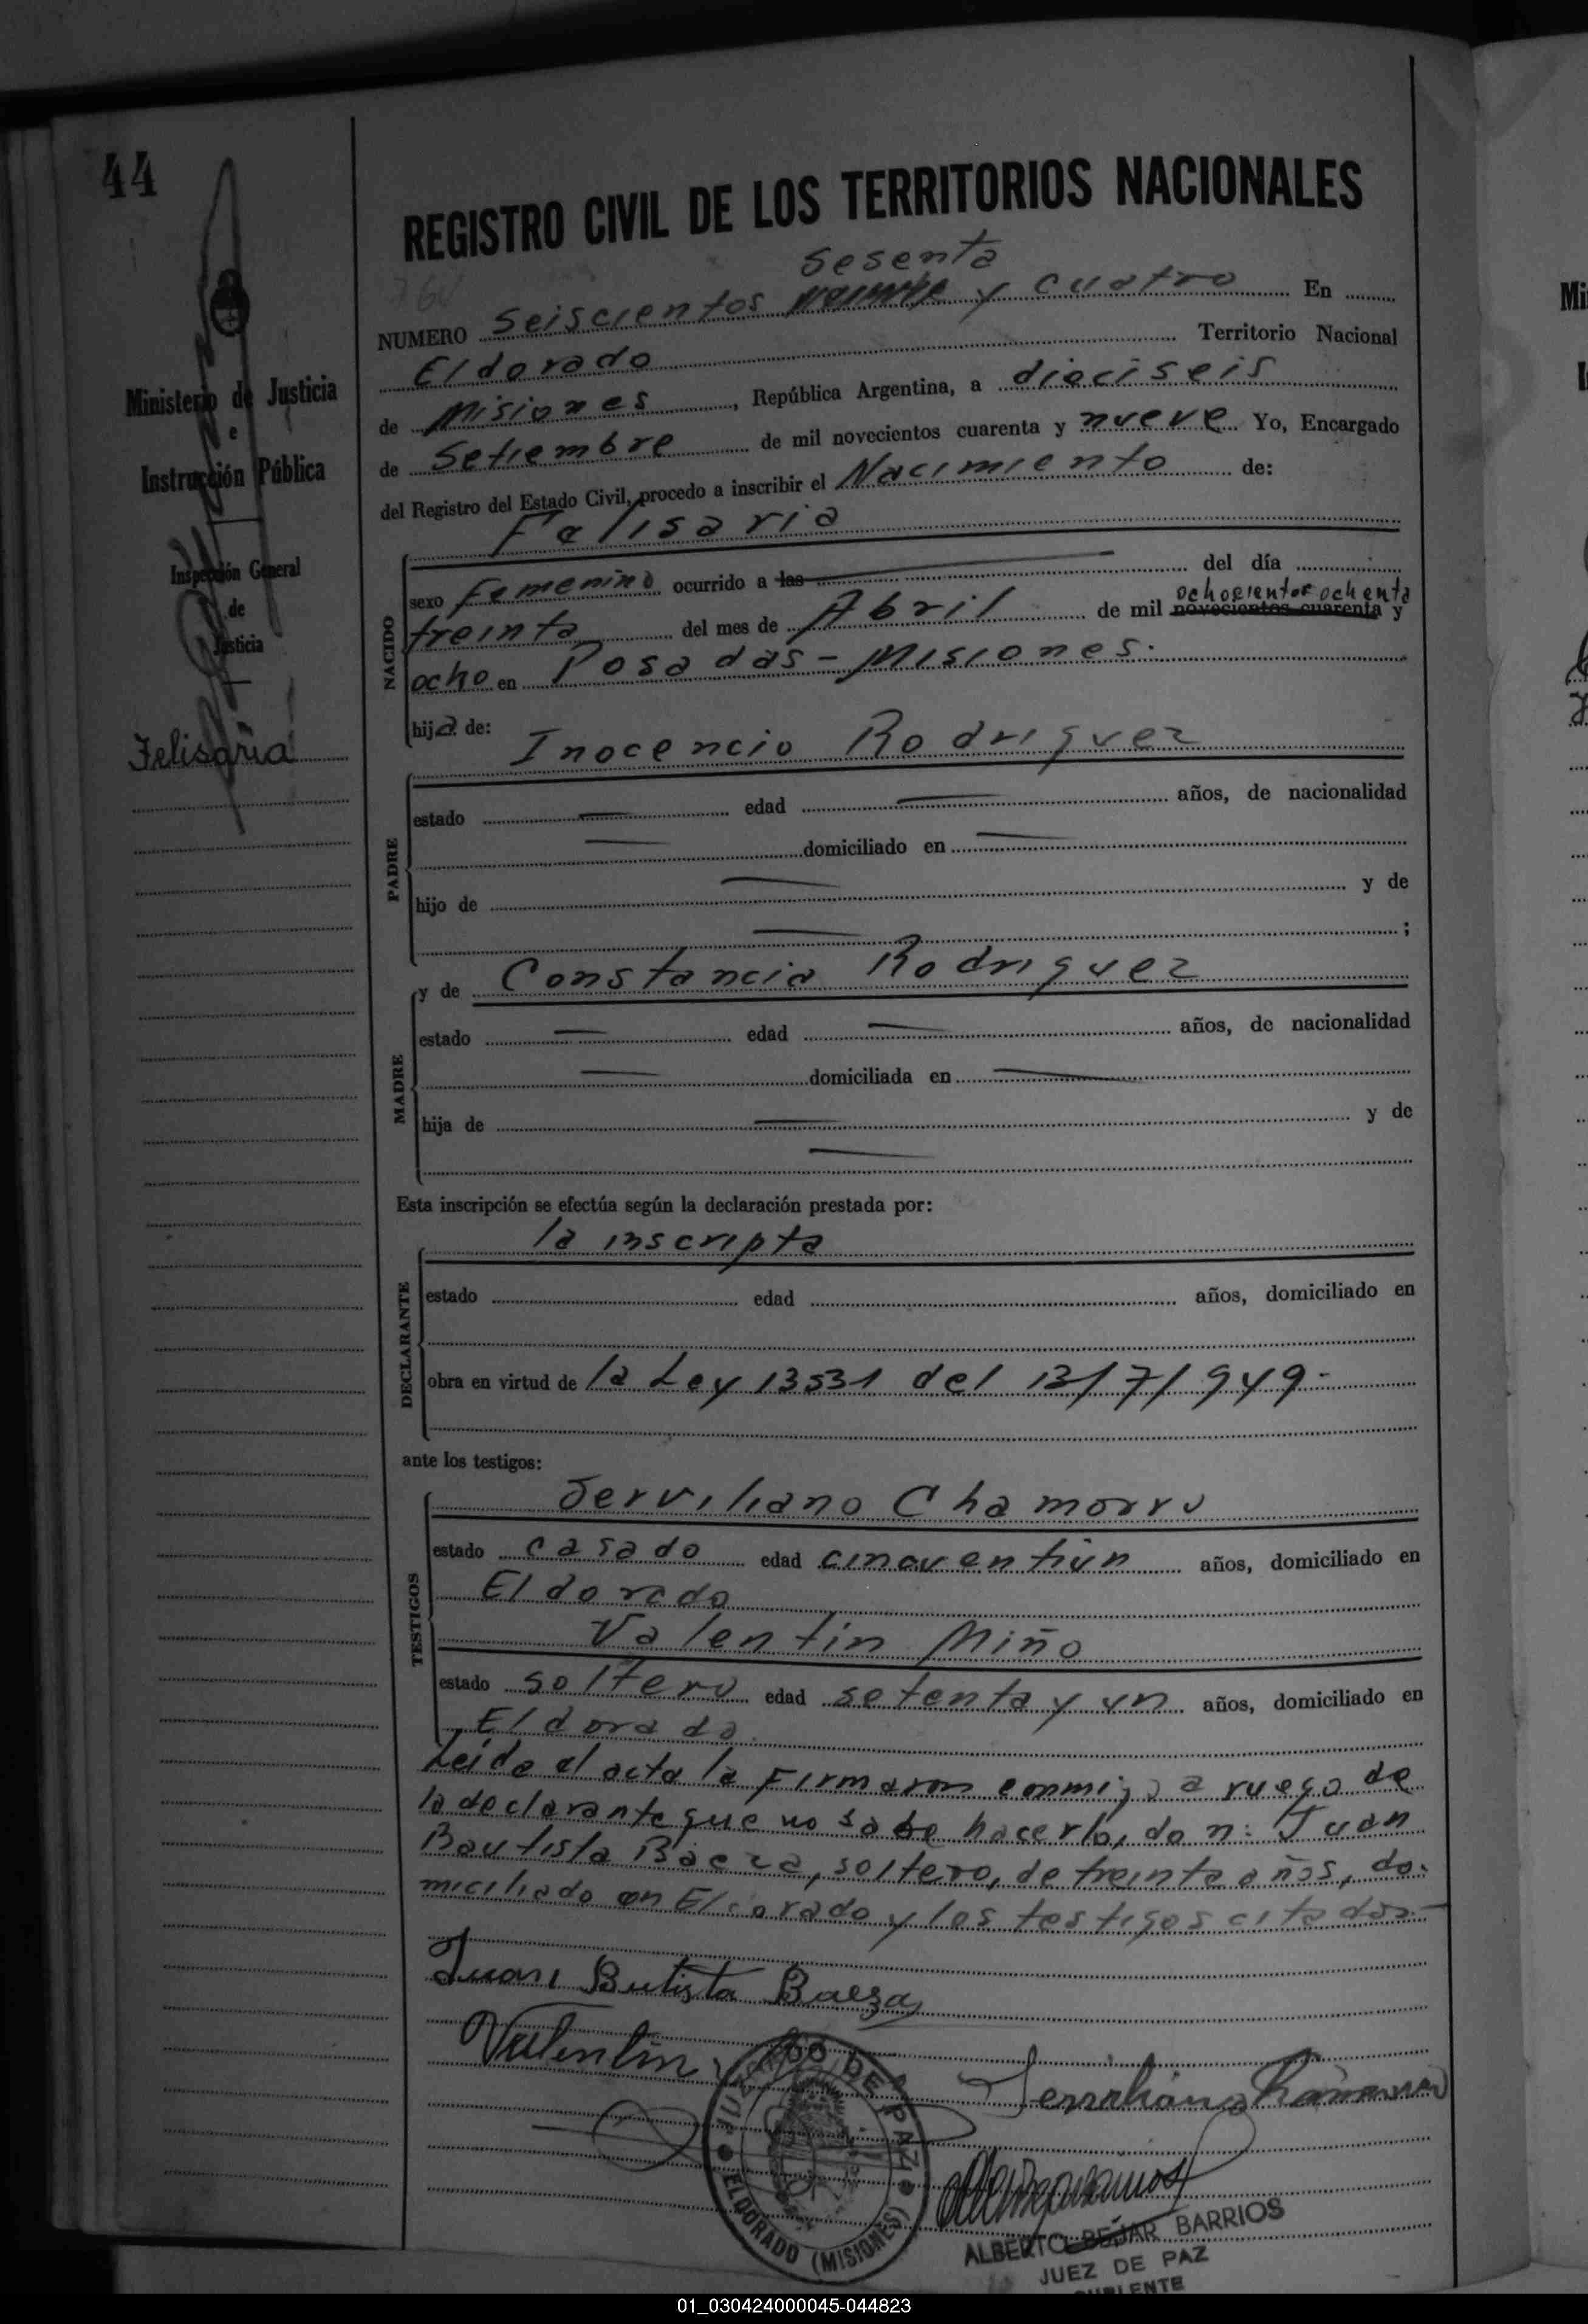 44
REGISTRO CIVIL DE LOS TERRITORIOS NACIONALES
sesenta
NUMERO Seiscientos veinte y cuatro En
Eldorado Territorio Nacional
de Misiones, República Argentina, a dieciseis
de Setiembre de mil novecientos cuarenta y nueve Yo, Encargado
del Registro del Estado Civil, procedo a inscribir el Nacimiento de:
Ministerio de Justicia
e
Instrucción Pública
Inspección General
de
Justicia
Felisaria
NACIDO
Felisaria
sexo Femenino ocurrido a las del día
ochocientos ochenta
treinta del mes de Abril de mil novecientos cuarenta y
ocho en Posadas - Misiones.
hija de:
PADRE
Inocencio Rodriguez
estado edad años, de nacionalidad
domiciliado en
hijo de y de
;
MADRE
y de Constancia Rodriguez
estado edad años, de nacionalidad
domiciliada en
hija de y de
Esta inscripción se efectúa según la declaración prestada por:
DECLARANTE
la inscripta
estado edad años, domiciliado en
obra en virtud de la Ley 13531 del 13/7/949.-
ante los testigos:
TESTIGOS
Serviliano Chamorro
estado casado edad cincuentiun años, domiciliado en
Eldorado
Valentin Miño
estado soltero edad setenta y un años, domiciliado en
Eldorado
Leida el acta la Firmaron conmigo a ruego de
la declarante que no sabe hacerlo, don: Juan
Bautista Baeza, soltero, de treinta años, do-
miciliado en Eldorado y los testigos citados.-
Juan Butista Baeza
Valentin
Serviliano Chamorro
JUZGADO DE PAZ
ELDORADO (MISIONES)
ALBERTO BEJAR BARRIOS
JUEZ DE PAZ
SUPLENTE
01_030424000045-044823